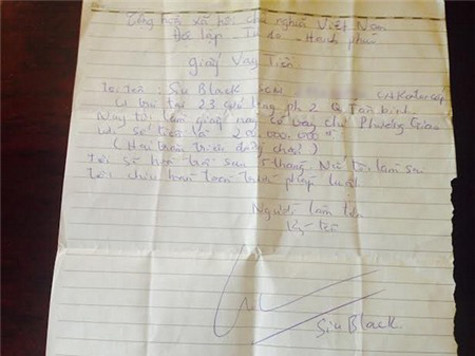 Cộng hòa xã hội chủ nghĩa Việt Nam
Độc lập - Tự do - Hạnh phúc
giấy Vay Tiền
Tôi tên : Siu Black
cư trú tại 23 ph 2 Q Tân bình
Nay tôi làm giấy này có vay chị Phương Giao
với số tiền là 200.000.000 đ
( Hai trăm triệu đồng chẵn )
tôi sẽ hoàn trả sau 1 tháng, Nếu tôi làm sai
tôi chịu hoàn toàn trước pháp luật.
Người làm tên
ký tên
Siu Black.